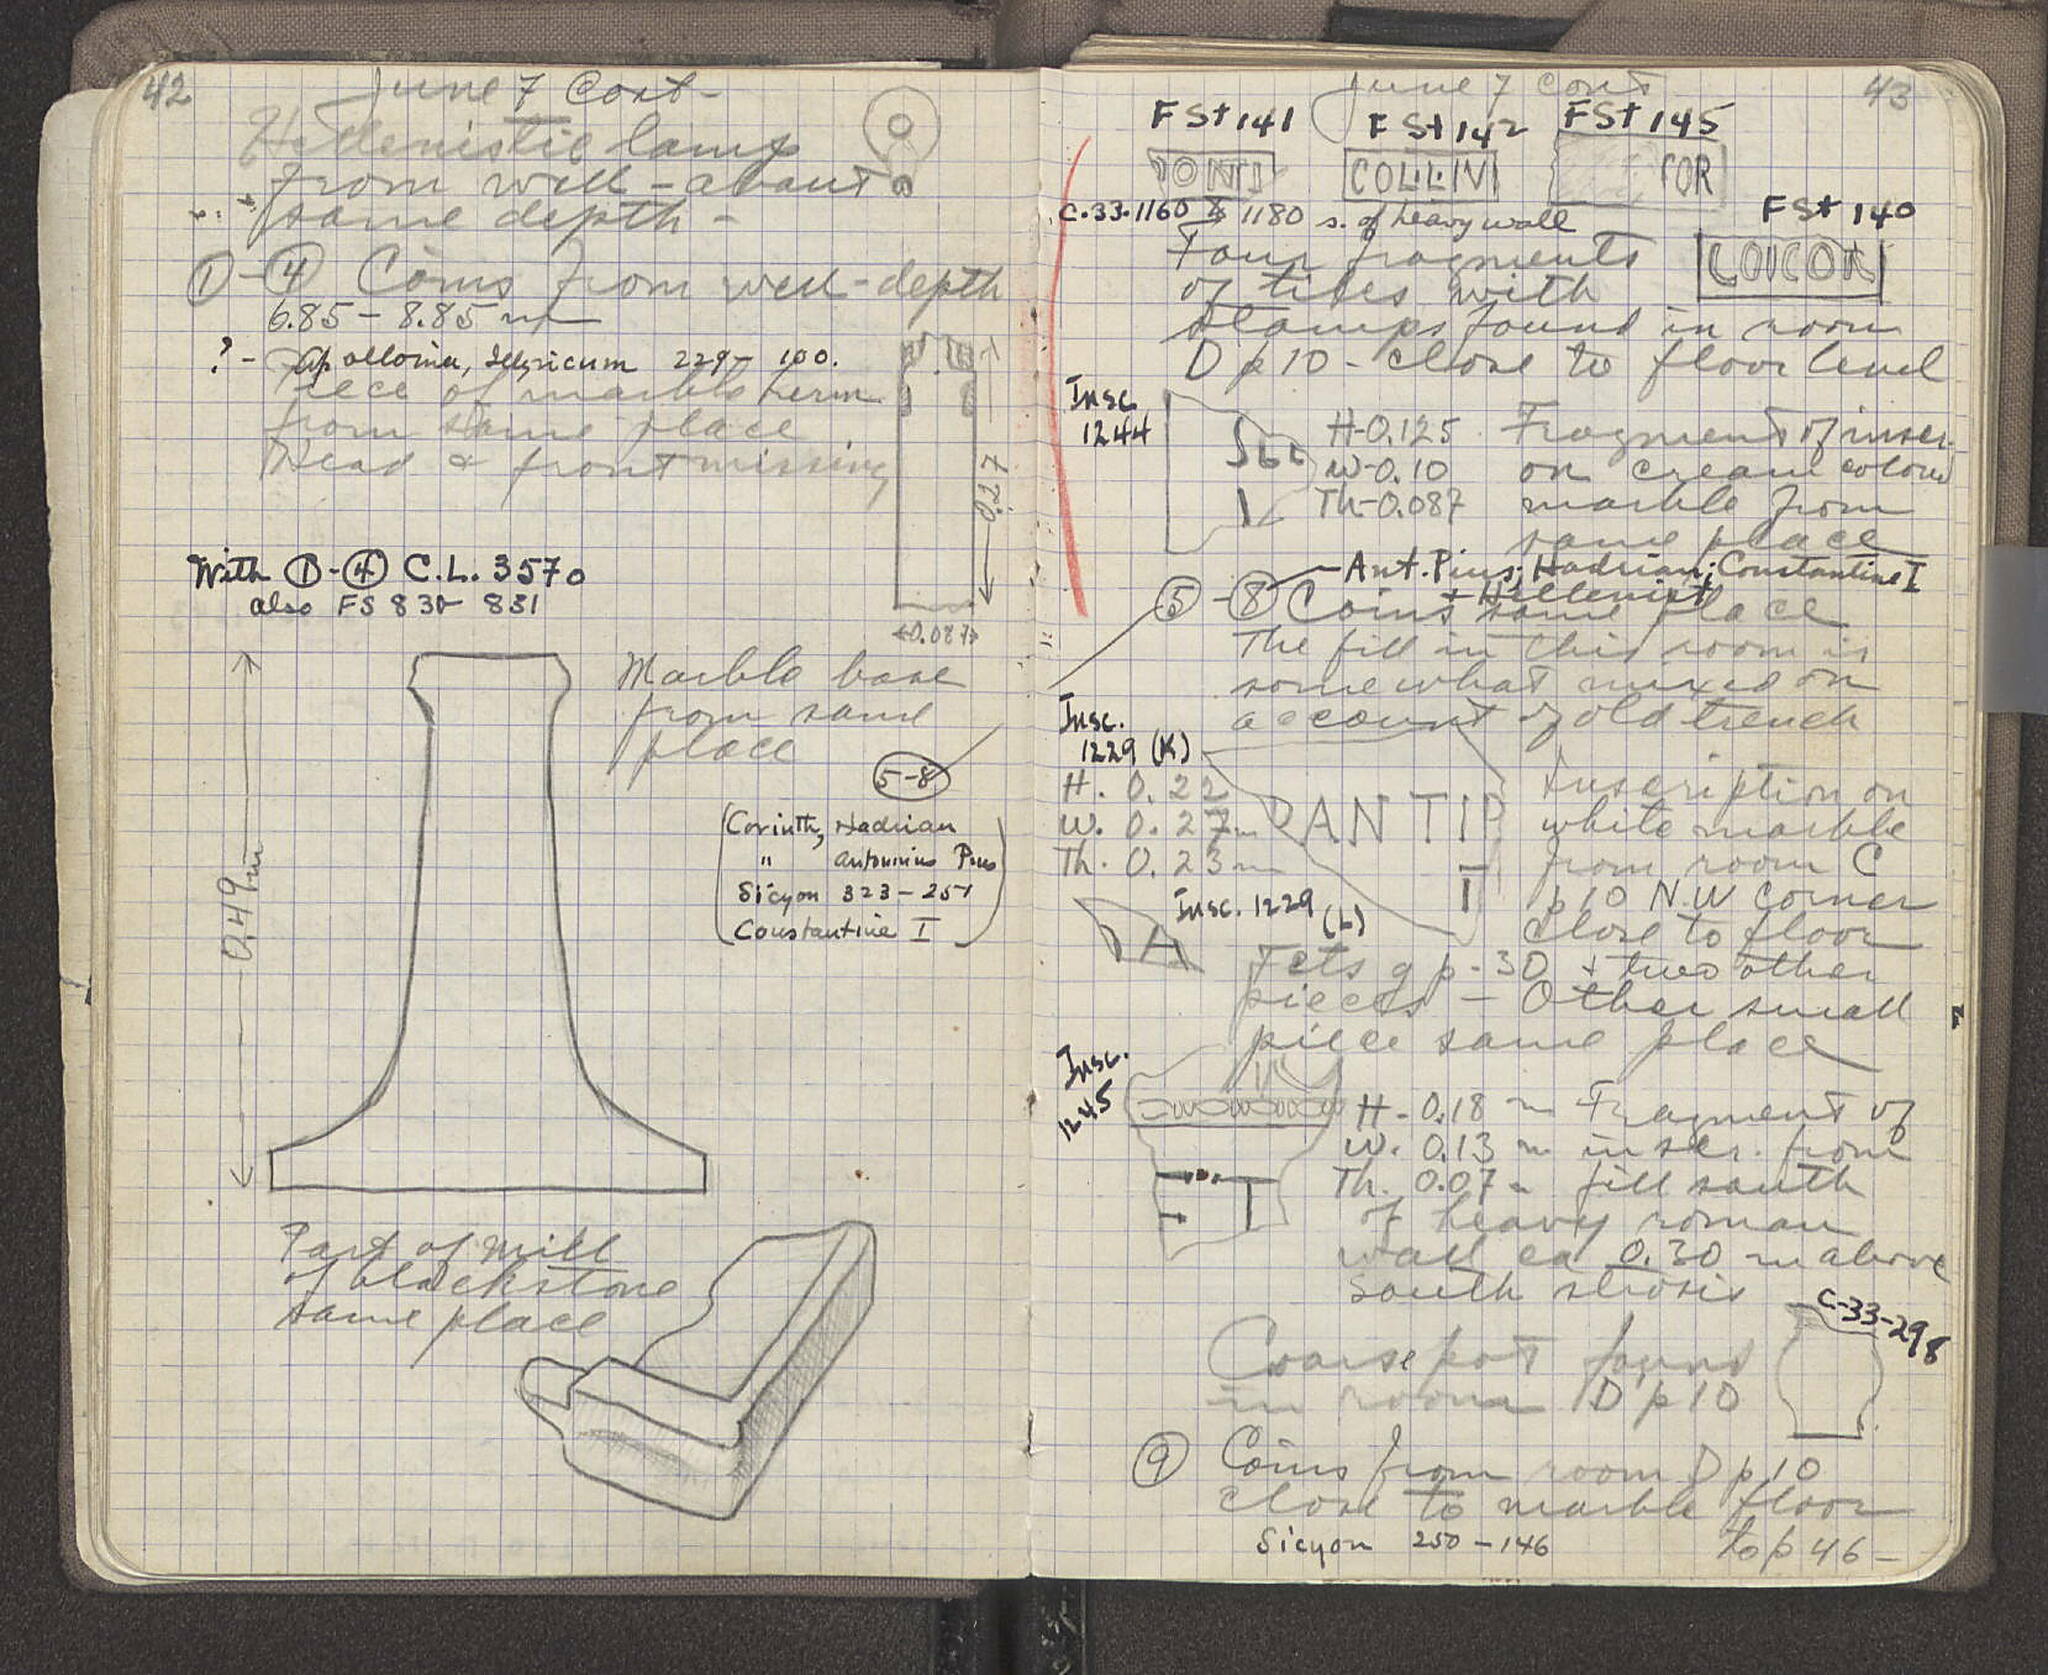 42
June 7 Cont-
Hellenistic lamp
from well - about
same depth -
① - ④ Coins from well - depth
6.85 - 8.85 m
? - Apollonia, Illyricum 229 - 100.
Piece of marble herm
from same place
Head & front missing
0.27
0.087
With ① - ④ C.L. 3570
also FS 830- 831
Marble base
from same
place
5-8
Corinth, Hadrian
" Antoninus Pius
Sicyon 323-251
Constantine I
0.49m
Part of mill
of black stone
same place
June 7 Cont
43
FSt 141 FSt 142 FSt 145
PONTI COLLIV COR
C.33.1160 & 1180 s. of heavy wall
FSt 140
Four fragments
COLCOR
of tiles with
stamps found in room
D p 10 - close to floor level
Insc.
1244
H-0.125 Fragment of inscr.
W-0.10 on cream colored
Th-0.087 marble from
same place
Ant. Pius; Hadrian; Constantine I
+ Hellenist
⑤ - ⑧ Coins same place
The fill in this room is
somewhat mixed on
account of old trench
Insc.
1229 (K)
H. 0.22 Inscription on
W. 0.27m PANTIP white marble
Th. 0.23m from room C
T p 10 N.W corner
close to floor
Insc. 1229 (L)
A
Fits g p-30 + two other
pieces - Other small
piece same place
Insc.
1245
H - 0.18 m Fragment of
W. 0.13 m inscr. from
Th. 0.07 m fill south
of heavy roman
wall ca 0.30 m above
south stosis
C-33-298
Coarse pot found
in room D p 10
⑨ Coins from room D p 10
close to marble floor
Sicyon 250-146
to p 46 -